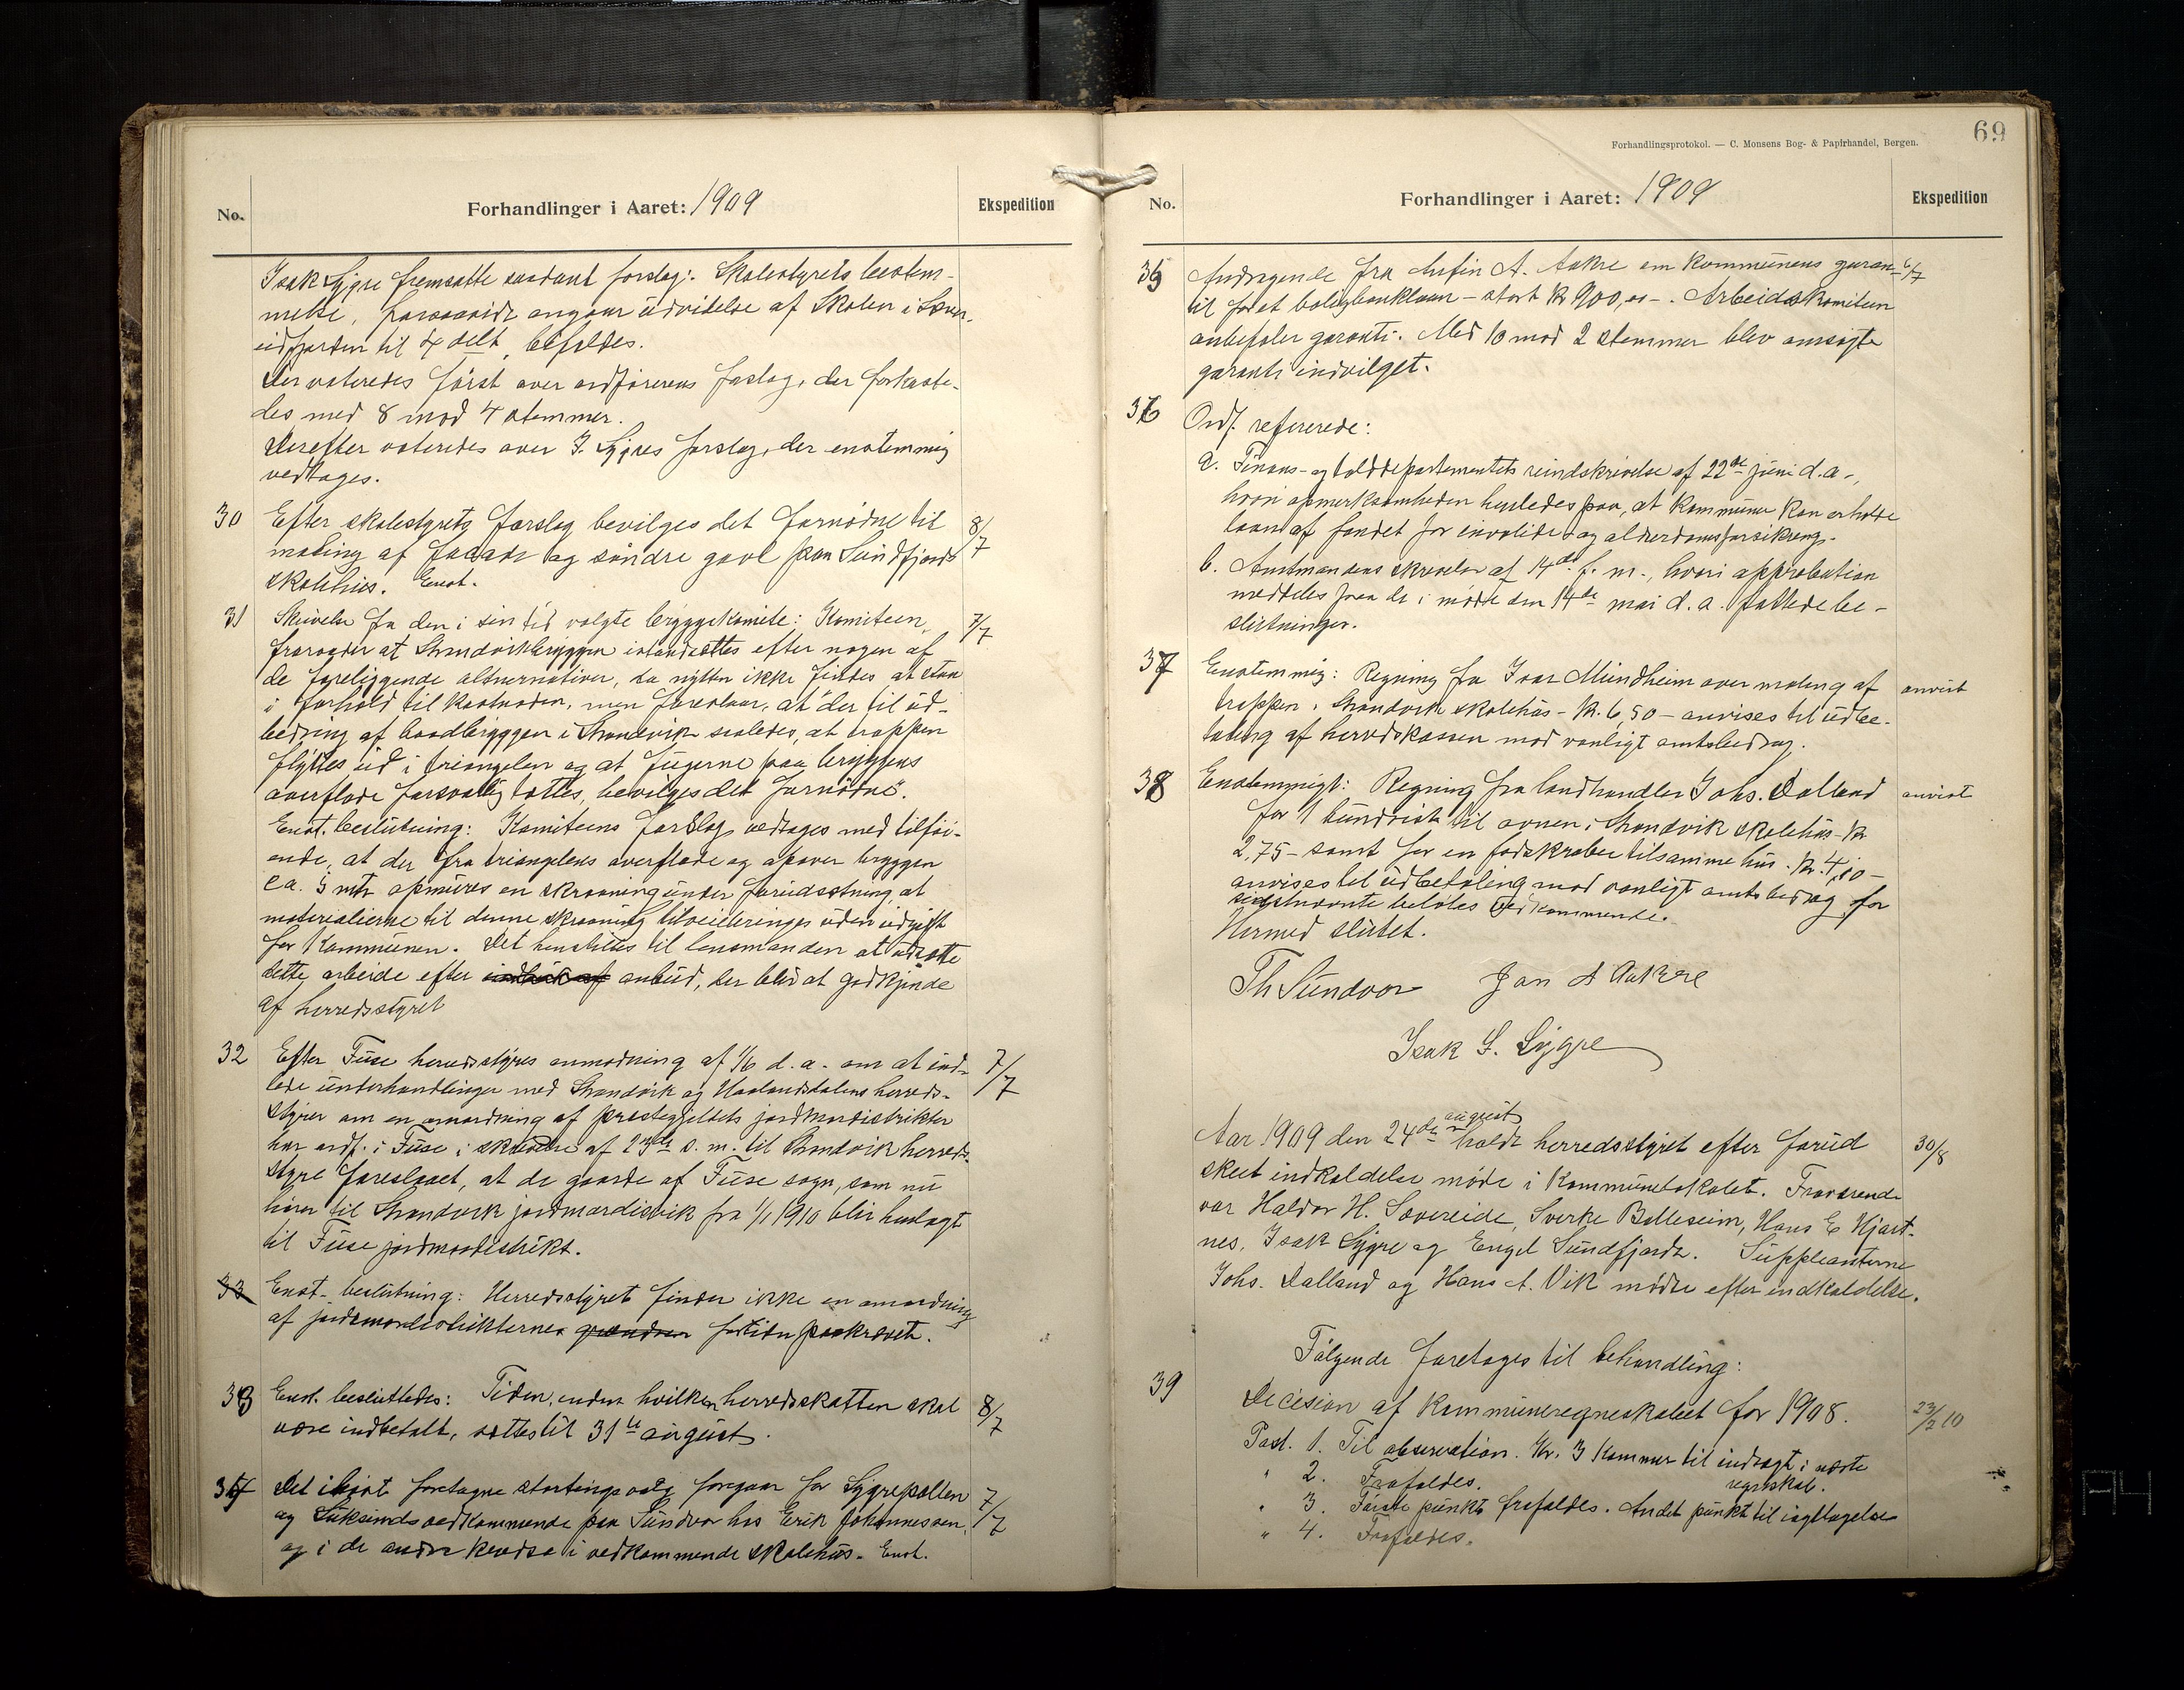 No.
Forhandlinger i Aaret: 1909
Ekspedition
Isak Lygre fremsatte saadant forslag: Skolestyrets bestem-
melse, forsaavidt angaar udvidelse af Skolen i Sæver-
eidfjorden til 4 delt, bifaldes.
Der voteredes først over ordførerens forslag, der forkaste-
des med 8 mod 4 stemmer.
Derefter voteredes over I. Lygres forslag, der enstemmig
vedtages.
30 Efter skolestyrets forslag bevilges det fornødne til 8/7
maling af facade og søndre gavl paa Sundfjords
skolehus. Enst.
31 Skrivelse fra den i sin tid valgte bryggekomite: Komiteen 7/7
fraraader at Strandvikbryggen istandsættes efter nogen af
de foreliggende alternativer, da nytten ikke findes at staa
i forhold til kostnaden, men foreslaar, at der til ud-
bedring af baadbryggen i Strandvik saaledes, at trappen
flyttes ud i triangelen og at fugerne paa bryggens
overflade forsvarlig tættes, bevilges det fornødne.
Enst. beslutning: Komiteens forslag vedtages med tilføi-
ende, at der fra triangelens overflade og opover bryggen
ca. 5 mtr opmures en skraaning under forudsætning, at
materialierne til denne skraaning tilveiebringes uden udgift
for Kommunen. Det henstilles til lensmanden at udsætte
dette arbeide efter anbud, der blir at godkjende
af herredsstyret
32 Efter Fuse herredsstyres anmodning af 1/6 d. a. om at ind- 7/7
lede underhandlinger med Strandvik og Haalandsdalens herreds-
styrer om en omordning af præstegjeldets jordmordistrikter
har ordf. i Fuse i skrivelse af 23de s. m. til Strandvik herreds-
styre foreslaaet, at de gaarde af Fuse sogn, som nu
hører til Strandvik jordmordistrik fra 1/1 1910 blir henlagt
til Fuse jordmordistrikt.
33 Enst. beslutning: Herredsstyret finder ikke en omordning
af jordmordistrikterne for tiden paakrævet.
33 Enst. besluttedes: Tiden, inden hvilken herredsskatten skal 8/7
være indbetalt, sættes til 31te august.
34 Det i høst foretagne stortingsvalg foregaar for Lygrepollen 7/7
og Sukeunds vedkommende paa Sundvor hos Erik Johannessen,
og i de andre kredse i vedkommende skolehus. Enst.
69
Forhandlingsprotokol. — C. Monsens Bog- & Papirhandel, Bergen.
No.
Forhandlinger i Aaret: 1909
Ekspedition
35 Andragende fra Anfin A. Aakre om Kommunens garan- 6/7
til foret boligbanklaan - stort kr 900,00 -. Arbeidskomiteen
anbefaler garanti. Med 10 mod 2 stemmer blev ansøgte
garanti indvilget.
36 Ordf. refererede:
a. Finans- og tolddepartementets rundskrivelse af 22de juni d. a -,
hvori opmerksomheden henledes paa, at Kommuner kan erholde
laan af fondet for invalide- og alderdomsforsikring.
b. Amtmandens skrivelse af 14de f. m., hvori approbation
meddeles paa de i møde den 14de mai d. a. fattede be-
slutninger.
37 Enstemmig: Regning fra Ivar Mundheim over maling af anvist
trappen i Strandvik skolehus - kr. 6,50 - anvises til udbe-
taling af herredskassen mod vanligt amtsbidrag.
38 Enstemmigt: Regning fra landhandler Johs. Dalland anvist
for 1 bundrist til ovnen i Strandvik skolehus - kr
2,75 - samt for en fodskraber til samme hus. kr. 4,10 -
anvises til udbetaling mod vanligt amtsbidrag for
sidstnævnte beløbs vedkommende.
Hermed sluttet.
Th Sundvor Jan A Aakre
Isak S. Lygre
Aar 1909 den 24de august holdt herredsstyret efter forud 30/8
skeet indkaldelse møde i Kommunelokalet. Fraværende
var Haldor H. Sævereide, Sverke Bolleseim, Hans E Hjart-
nes, Isak Lygre og Engel Sundfjord. Suppleanterne
Johs. Dalland og Hans A. Vik mødte efter indkaldelse.
Følgende foretages til behandling:
39 Decision af Kommuneregnskabet for 1908. 23/2 10
Post. 1. Til observation. Kr. 3 kommer til indtægt i næste
regnskab.
" 2. Frafaldes.
" 3. Første punkt frafaldes. Andet punkt til iagttagelse
" 4. Frafaldes.